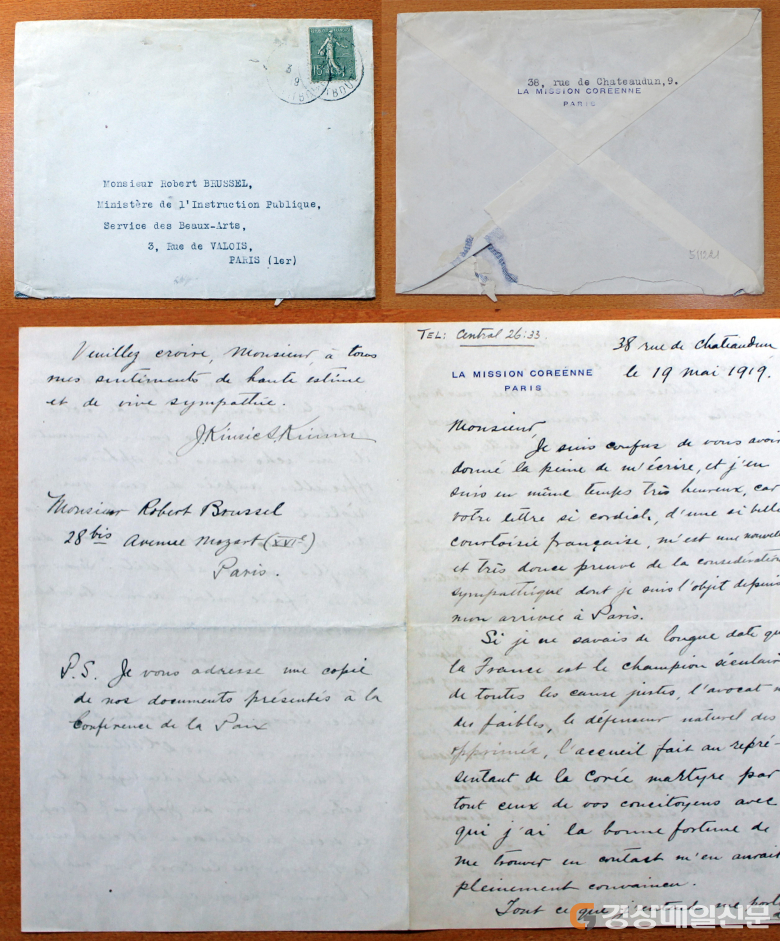 15c
Monsieur Robert BRUSSEL,
Ministère de l'Instruction Publique,
Service des Beaux-Arts,
3, Rue de VALOIS,
PARIS (1er)
38, rue de Chateaudun,9.
LA MISSION CORÉENNE
PARIS
Veuillez croire, Monsieur, à tous
mes sentiments de haute estime
et de vive sympathie.
Monsieur Robert Brussel
28 bis Avenue Mozart (XVIe)
Paris.
P.S. Je vous adresse une copie
de nos documents présentés à la
Conférence de la Paix
TEL: Central 26:33.
38 rue de Chateaudun
LA MISSION CORÉENNE
PARIS
le 19 mai 1919.
Monsieur
Je suis confus de vous avoir
donné la peine de m'écrire, et j'en
suis en même temps très heureux, car
votre lettre si cordiale, d'une si belle
courtoisie française, m'est une nouvelle
et très douce preuve de la considération
sympathique dont je suis l'objet depuis
mon arrivée à Paris.
Si je ne savais de longue date que
la France est le champion séculaire
de toutes les cause justes, l'avocat
des faibles, le défenseur naturel des
opprimés, l'accueil fait au repré-
sentant de la Corée martyre par
tout ceux de vos concitoyens avec
qui j'ai la bonne fortune de
me trouver en contact m'en aurait
pleinement convaincu.
Tout ce que j'entends me
경상매일신문